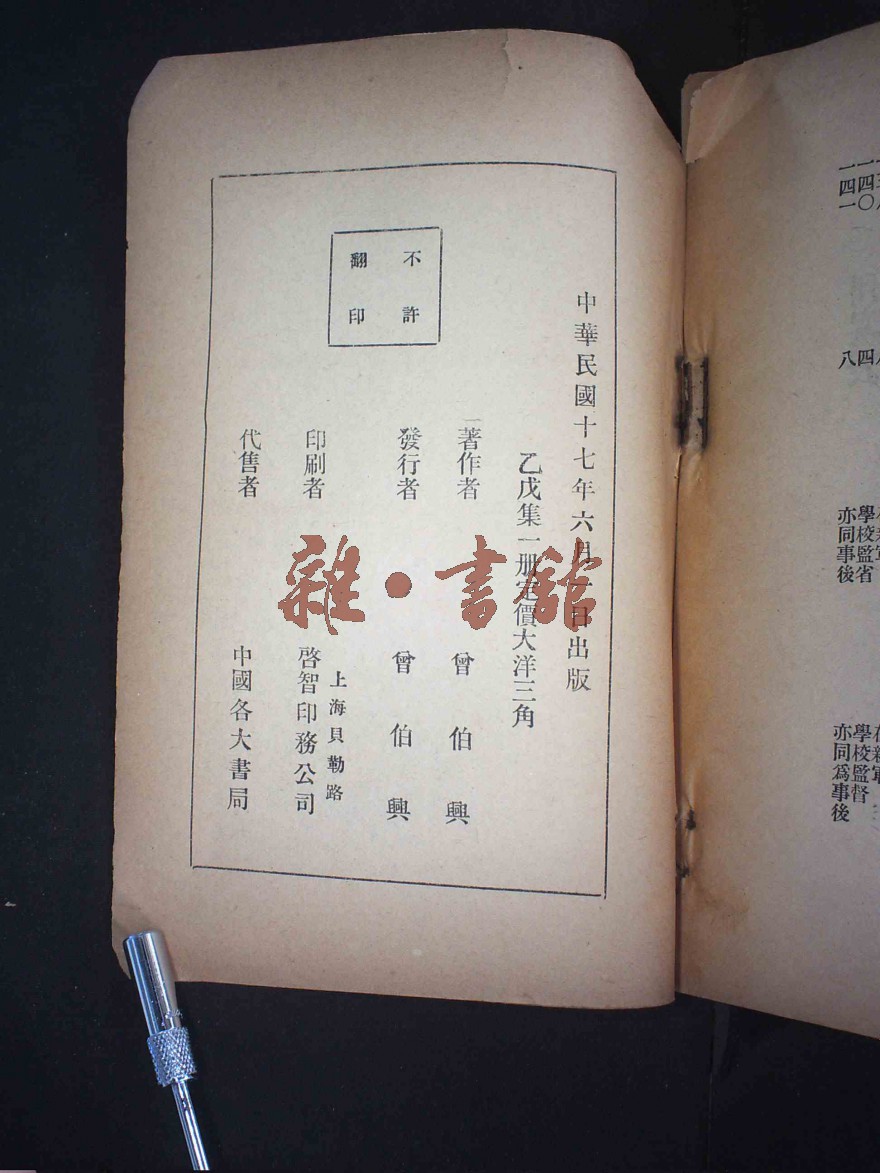 不許
翻印
中華民國十七年六月一日出版
乙戊集一册定價大洋三角
著作者 曾伯興
發行者 曾伯興
印刷者 上海貝勒路
啓智印務公司
代售者 中國各大書局
雜·書館
一四一
四〇
八
四
學校監省
亦同事後
學校監督
亦同爲事後